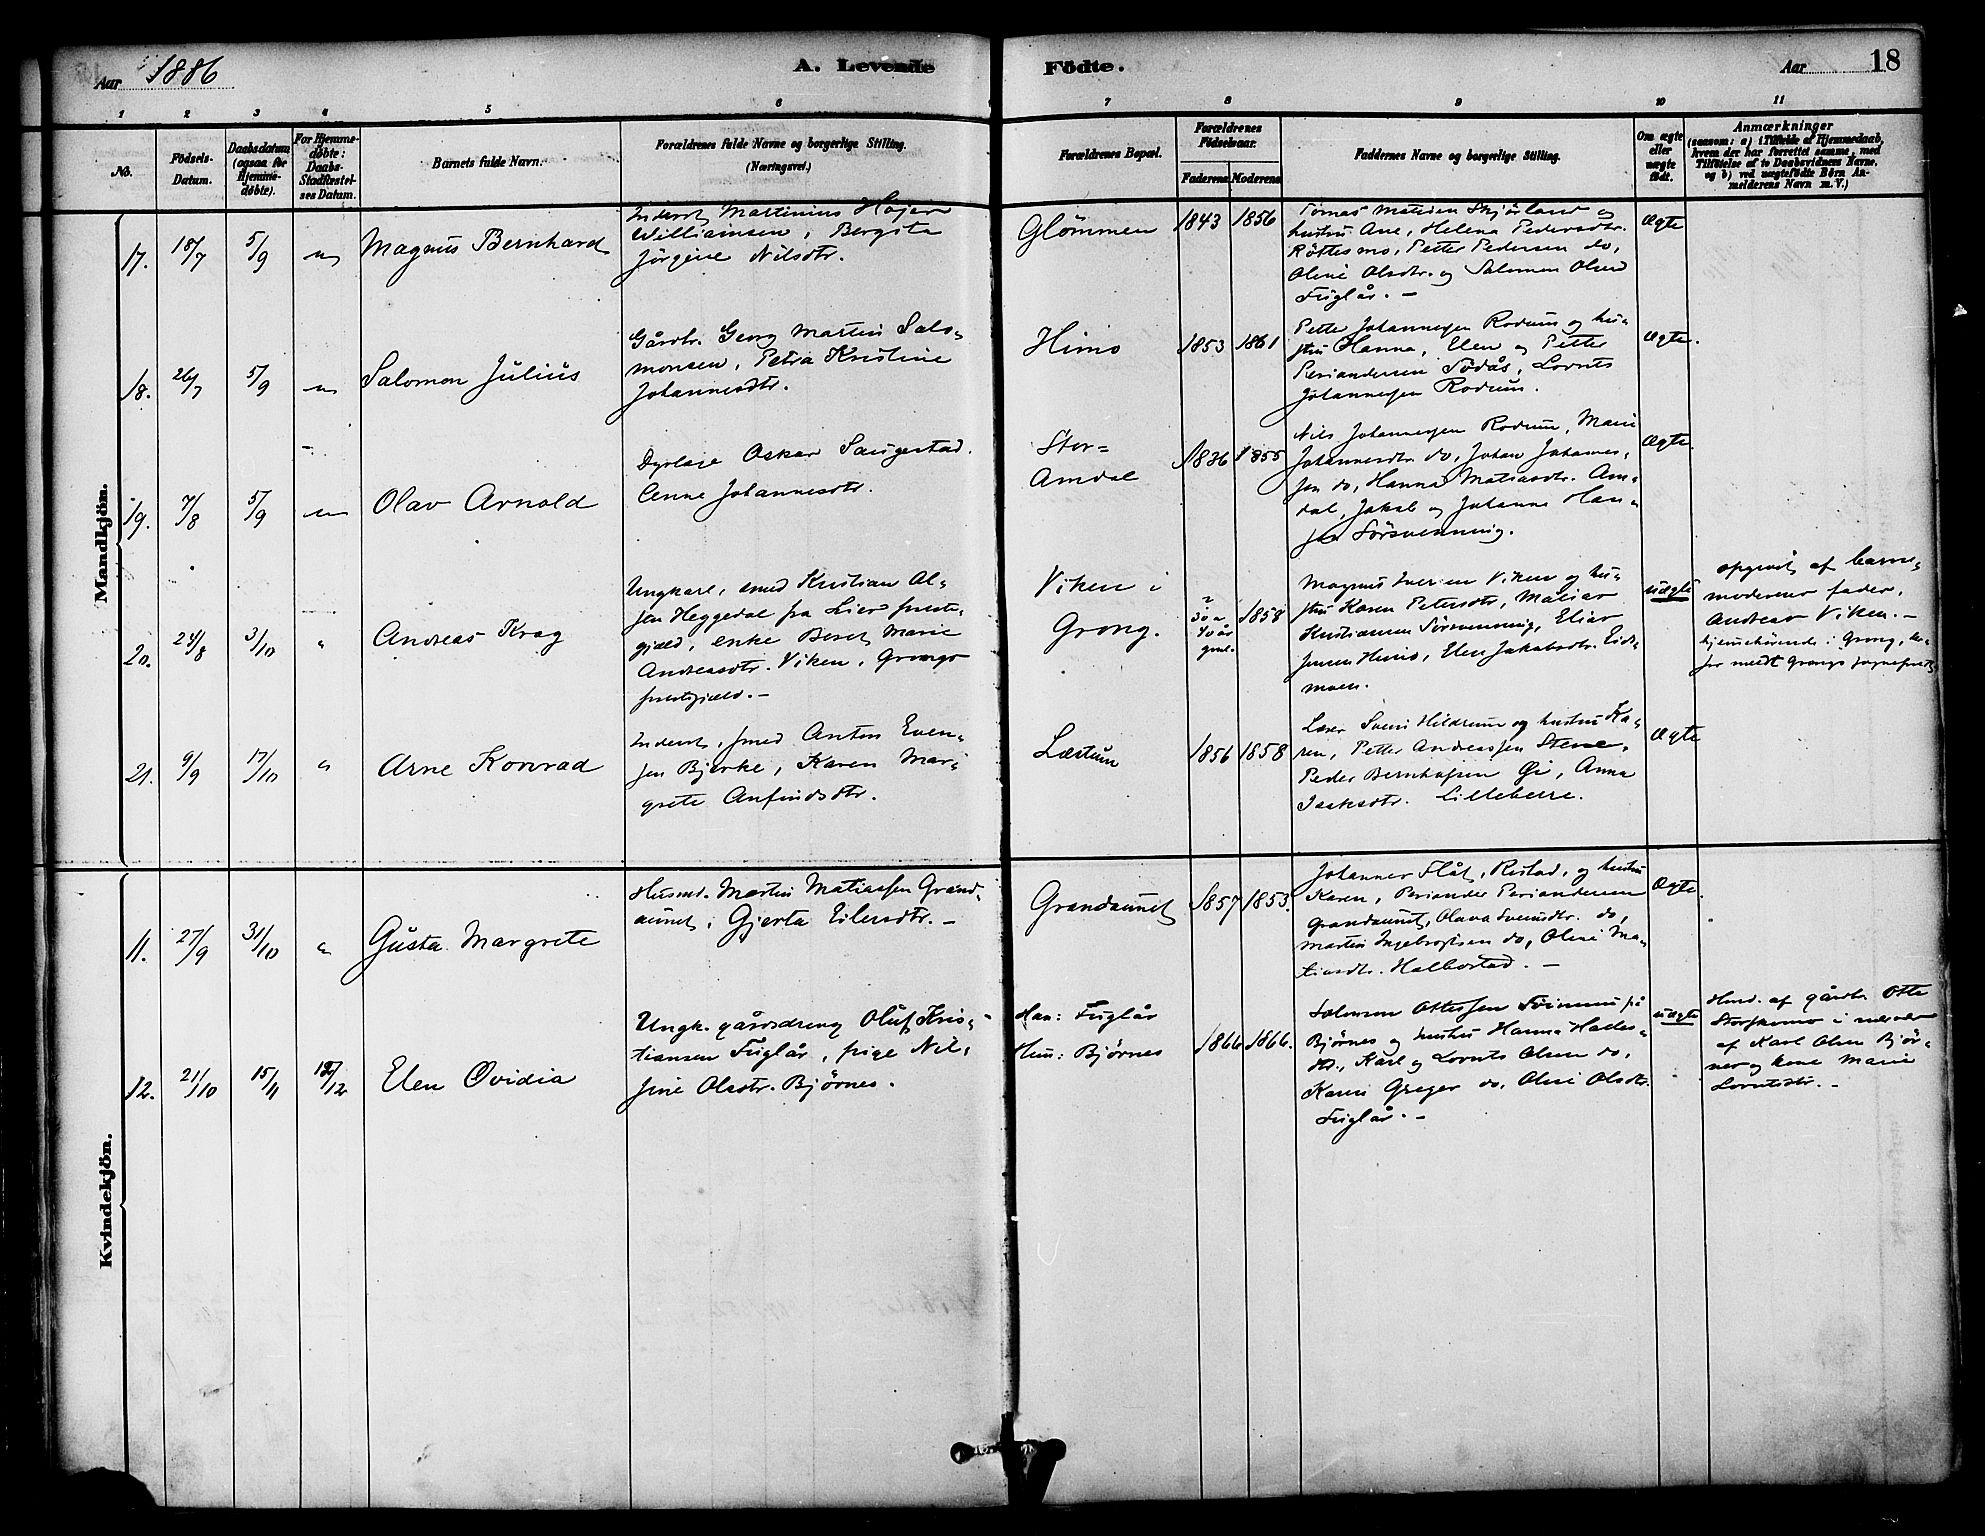 Aar 1886
A. Levende Födte.
Aar 18
1 2 3 4 5 6 7 8 9 10 11
No.
Födsels-Datum.
Daabsdatum (ogsaa för Hjemmedøbte).
For Hjemmedøbte: Daabs-Stadfæstelses Datum.
Barnets fulde Navn.
Forældrenes fulde Navne og borgerlige Stilling. (Næringsvei.)
Forældrenes Bopæl.
Forældrenes Födselsaar.
Faderens Moderens
Faddernes Navne og borgerlige Stilling.
Om ægte eller uægte födt.
Anmærkninger
(saasom: a) i Tilfælde af Hjemmedaab,
hvem der har forrettet samme, med
Tilföielse af to Daabsvidners Navne,
og b) ved uægtefödte Börn Anmelderens
Navn m. V.)
Mandkjön.
17. 18/7 5/9 Magnus Bernhard
Inderst Martinius Højer
Williamsen, Bergita
Jörgine Nilsdtr.
Glömmen 1843 1856
Tomas Matisen Skjörland og
hustru Ane, Helena Pedersdtr.
Röttesmo, Petter Pedersen do,
Oline Olsdtr. og Salomon Olsen
Fuglår. –
Ægte
18. 26/7 5/9 Salomon Julius
Gårdbr. Georg Martin Salo-
monsen, Petra Kristine
Johannesdtr.
Himo 1853 1861
Petter Johannesen Rodum og hu-
stru Hanna, Elen og Petter
Periandersen Södås, Lornts
Johannesen Rodum.
Ægte.
19. 7/8 5/9 Olav Arnold
Dyrlæge Oskar Saugestad.
Cenne Johannesdtr.
Stor-
Amdal 1836 1855
Nils Johannesen Rodum, Marie
Johannesdtr. do, Johan Johannes-
sen do, Hanna Matiasdtr. Am-
dal, Jakob og Johanna Han-
sen Sörsvenning.
Ægte
20. 24/8 3/10 " Andreas Krog
Ungkarl, smed Kristian Ol-
sen Heggedal fra Lier preste-
gjæld, enke Beret Marie
Andreasdtr. Viken, Grongs
prestegjæld. –
Viken i
Grong.
30 a
40 år
gml. 1858
Magnus Iversen Viken og hu-
stru Karen Petersdtr, Matias
Kristiansen Sörsvenning, Elias
Jensen Himo, Elen Jakobsdtr. Eid-
moen.
uægte
opgivet af barne-
moderens fader,
Andreas Viken. –
hjemhörende i Grong,
21. 9/9 17/10 " Arne Konrad
Inderst, smed Anton Even-
sen Bjerke, Karen Mar-
grete Anfindsdtr.
Læstum 1856 1858
Læser Svein Hildrum og hustru Ka-
ren, Petter Andreassen Stene,
Peder Bernhofsen Øi, Anna
Isaksdtr. Lilleberre.
Ægte
Kvindekjön.
11. 27/9 31/10 " Gusta Margrete
Husmd. Martin Matiassen Grand-
aunet, Gjerta Eilersdtr. –
Grandaunet 1857 1853.
Johannes Flåt, Ristad, og hustru
Karen, Periander Periandersen
Grandaunet, Olava Svendsdtr. do,
Martin Ingebrigtsen do, Oline Ma-
tiasdtr. Halbostad. –
Ægte.
12. 21/10 15/11 12/12 Elen Ovidia
Ungk. gårdsdreng Oluf Kris-
tiansen Fuglår, pige Nil-
sine Olsdtr. Bjørnes.
Han: Fuglår
Hun: Bjørnes
1866 1866.
Salomon Ottessen på
Bjørnes og hustru Hanna
do., Karl og Lornts Olsen do,
Karen Greger do, Oline Olsdtr.
Fuglår. –
uægte
Hmd. af gårdbr. Otte
i nærvær
af Karl Olsen Bjør-
nes og kone Marie
Lorntsdtr. –